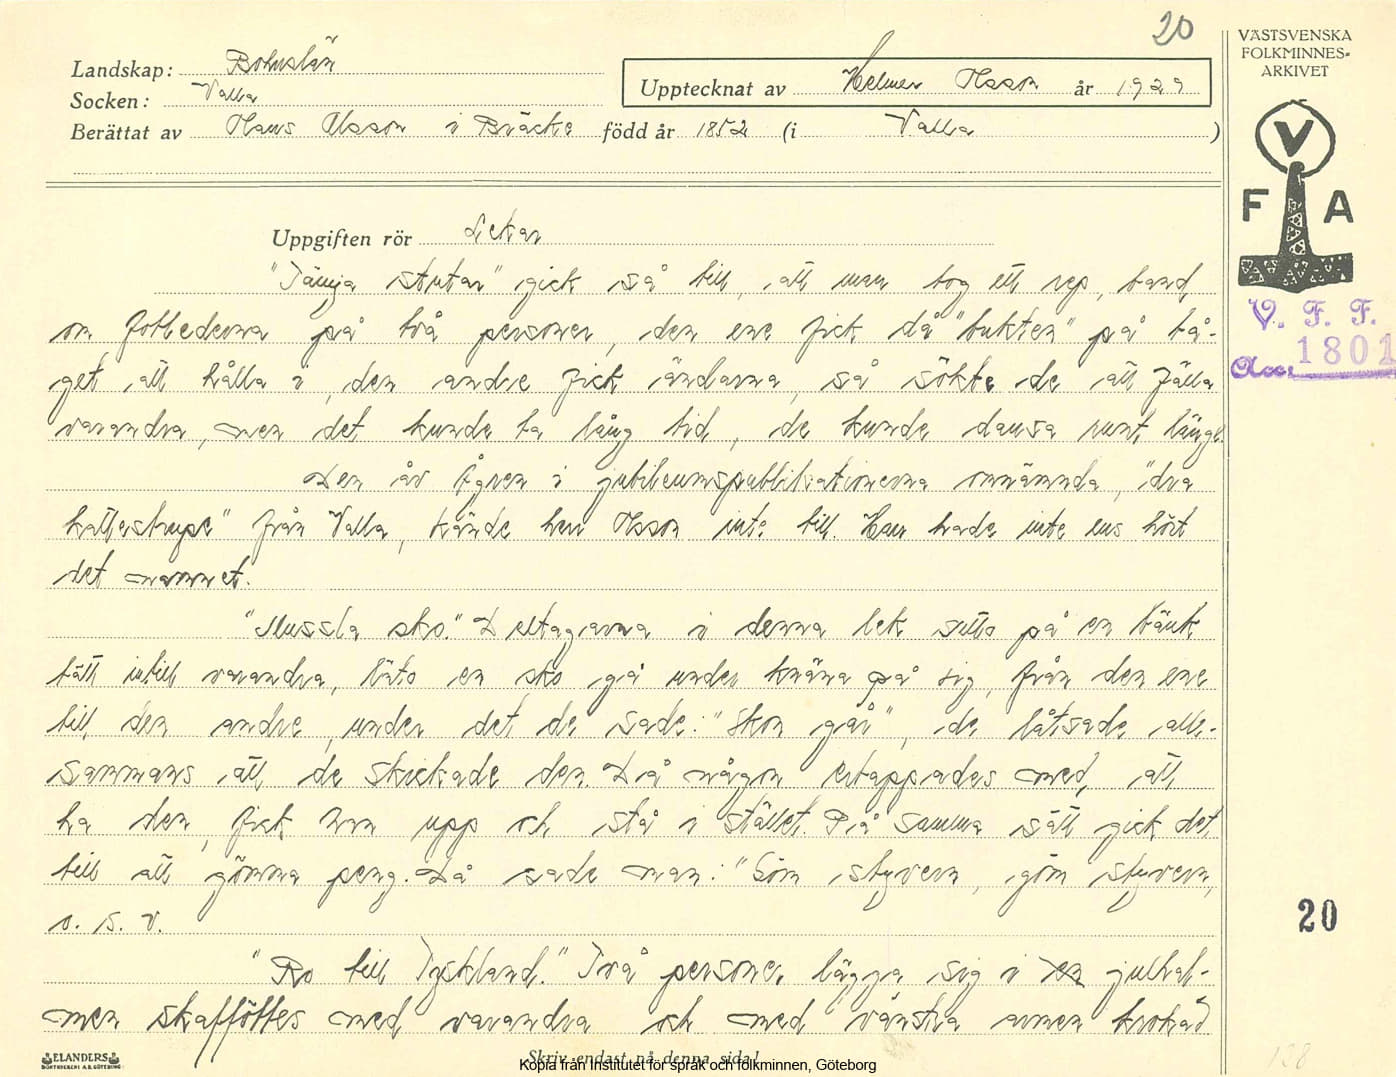 20
VÄSTSVENSKA
FOLKMINNES=
ARKIVET
Landskap: Bohuslän
Upptecknat av Helmer Olsson år 1929
Socken: Valla
Berättat av Hans Olsson i Bräcke född år 1852 (i Valla)
V
F A
Uppgiften rör Lekar
"Tämja stutar" gick så till, att man tog ett rep, band
om fotlederna på två personer, den ene fick då "bukten" på tå-
get att hålla i, den andre fick ändarna, så sökte de att fälla
varandra, men det kunde ta lång tid, de kunde dansa runt länge.
V. F. F.
Acc. 1801
Den av i jubileumspublikationerna omnämnda, "dra
från Valla, kände herr Olsson inte till. Han hade inte ens hört
det namnet.
"Mussla sko." Deltagarna i denna lek sutto på en bänk
tätt intill varandra, läto en sko gå under knäna på sig, från den ene
till den andre, under det de sade: "Skon går", de låtsade alle-
sammans att de skickade den. Då någon ertappades med att
ha den, fick hon upp och stå i stället. På samma sätt gick det
till att gömma peng. Då sade man: "Göm styvern, göm styvern,
o. s. v.
20
"Ro till Tyskland." Två personer lägga sig i julhal-
men skafföttes med varandra och med vänstra armen krokad
ELANDERS
BOKTRYCKERI A.B. GÖTEBORG
Skriv endast på denna sida!
Kopia från Institutet för språk och folkminnen, Göteborg